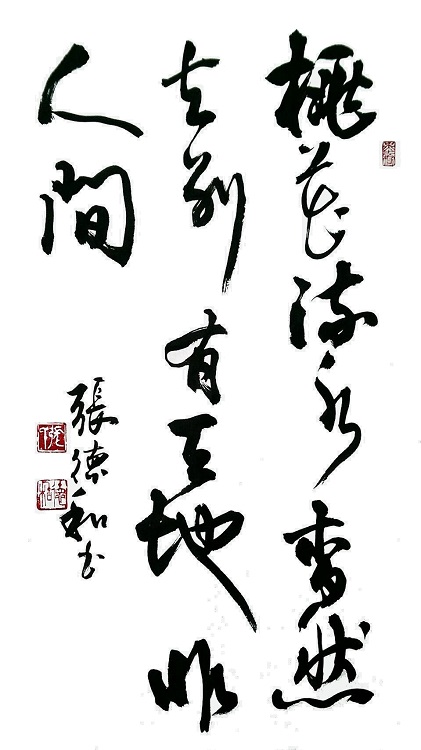 桃花流水窅然
去別有天地非
人間
張德和书